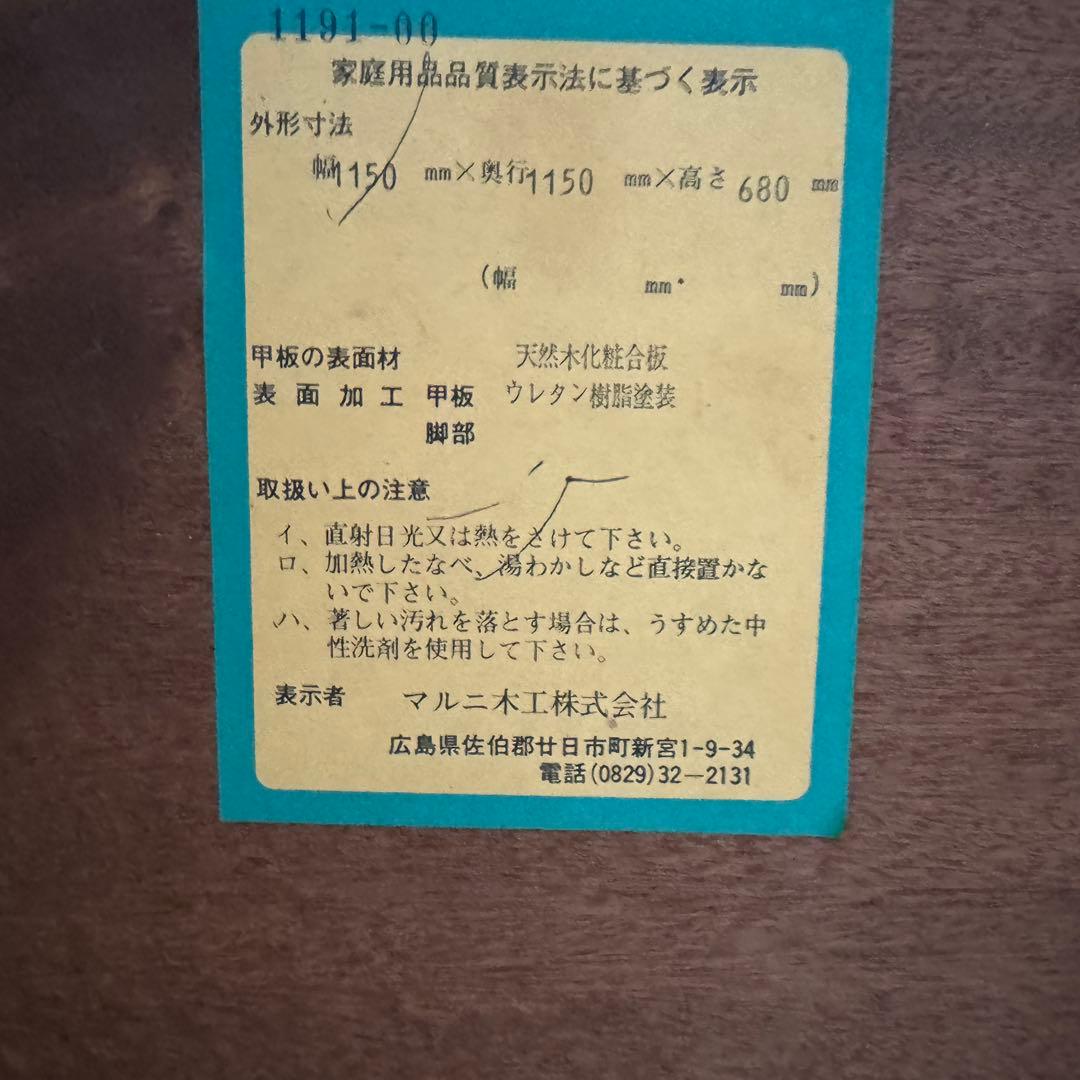 1191-00
家庭用品品質表示法に基づく表示
外形寸法
幅1150 mm×奥行1150 mm×高さ680 mm
(幅 mm・ mm)
甲板の表面材 天然木化粧合板
表面加工 甲板 ウレタン樹脂塗装
脚部
取扱い上の注意
イ、直射日光又は熱をさけて下さい。
ロ、加熱したなべ、湯わかしなど直接置かな
いで下さい。
ハ、著しい汚れを落とす場合は、うすめた中
性洗剤を使用して下さい。
表示者 マルニ木工株式会社
広島県佐伯郡廿日市町新宮1-9-34
電話(0829)32-2131